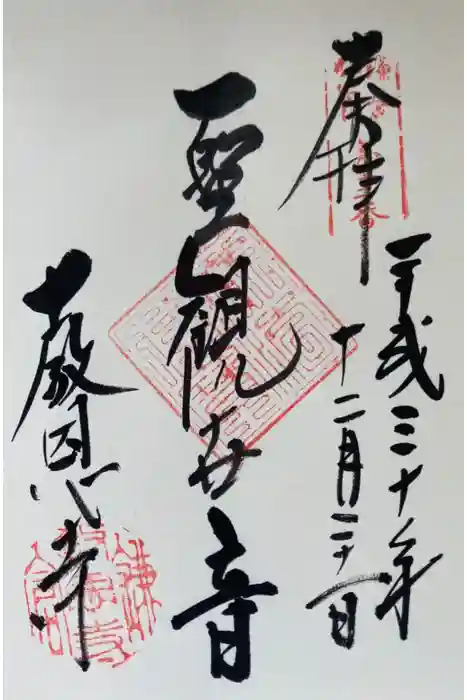 奉拝
平成三十年
十二月二十一日
聖観世音
教恩寺